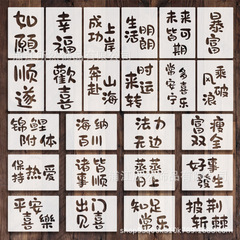 如願
幸福
成功
上岸
生活
明朗
未来
皆可期
暴富
顺遂
歡喜
奔赴
山海
时来
运转
多喜乐
常安宁
乘风
破浪
锦鲤
附体
海纳
百川
法力
无边
富瘦
双全
保持
热爱
诸事
皆顺
蒸蒸
日上
好事
發生
平安
喜樂
出门
见喜
知足
常乐
披荆
斩棘